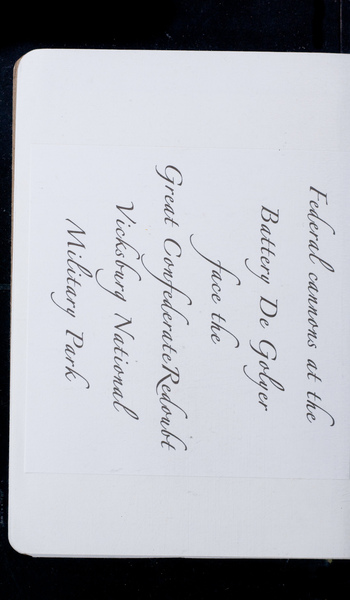 Federal cannons at the
Battery De Golyer
face the
Great ConfederateRedoubt
Vicksburg National
Military Park